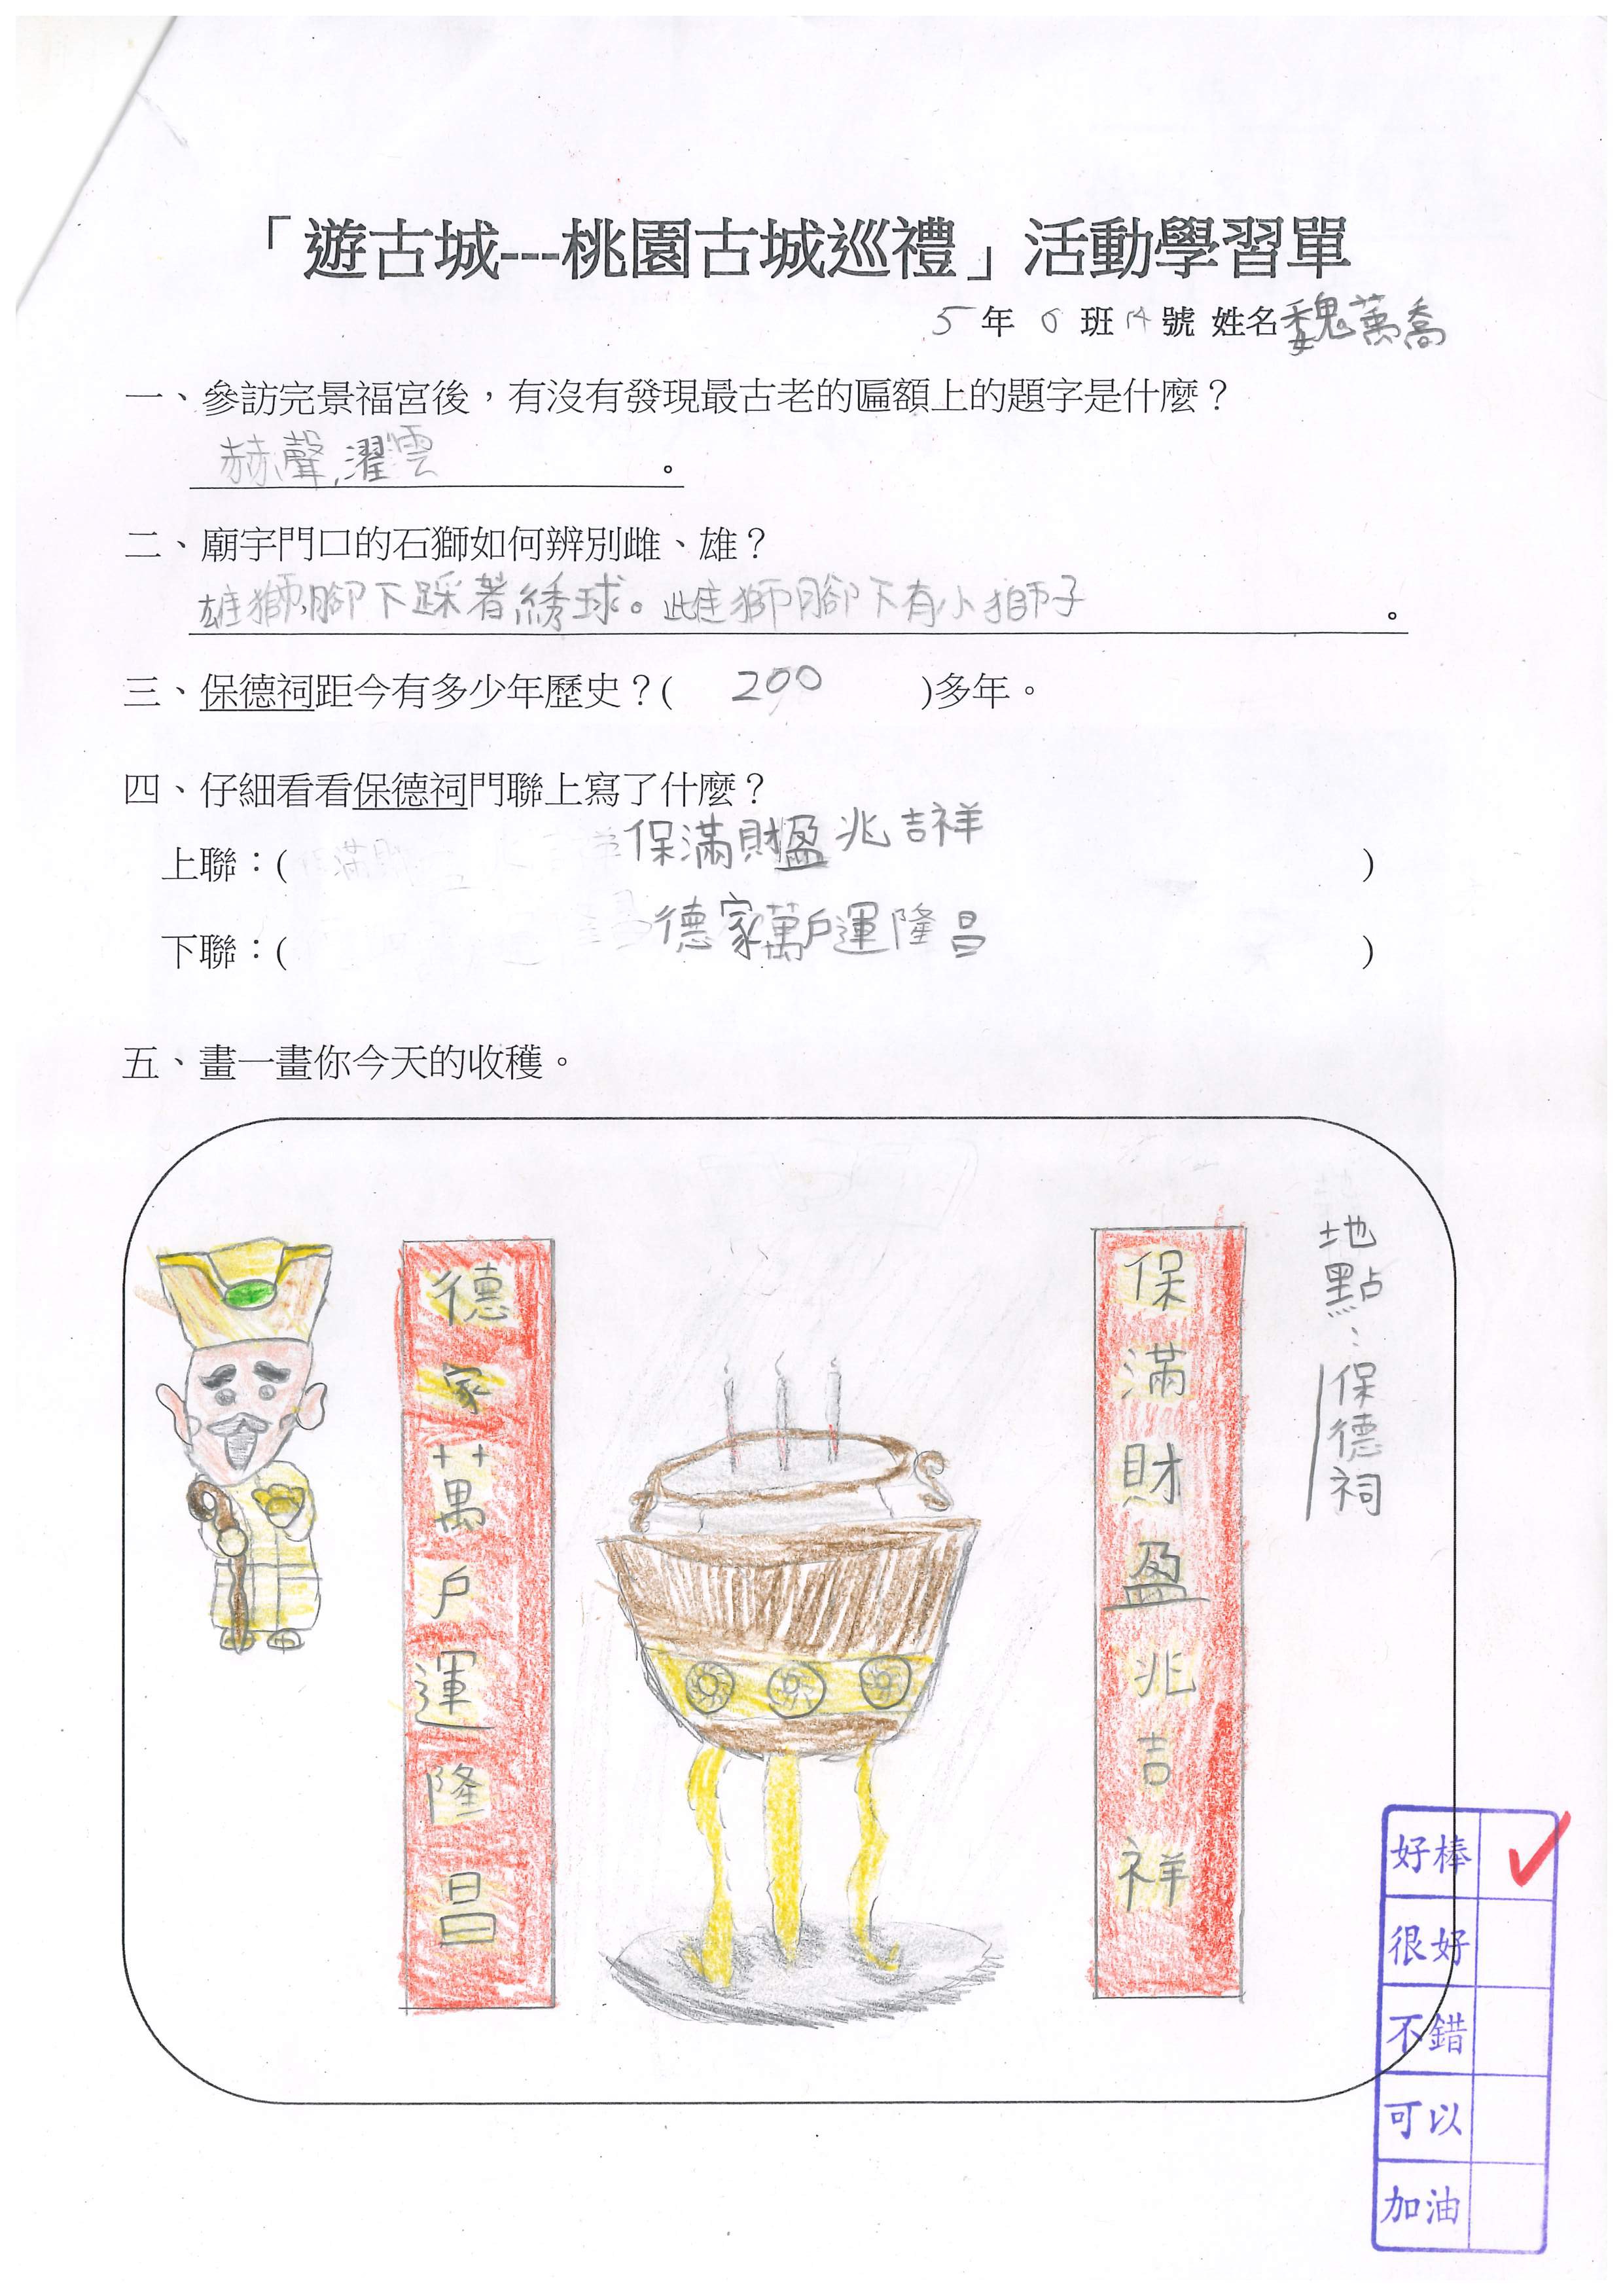 「遊古城---桃園古城巡禮」活動學習單
5年6班14號 姓名魏萬喬
一、參訪完景福宮後，有沒有發現最古老的匾額上的題字是什麼？
赫聲,濯雲。
二、廟宇門口的石獅如何辨別雌、雄？
雄獅腳下踩著綉球。雌獅腳下有小獅子。
三、保德祠距今有多少年歷史？( 200 )多年。
四、仔細看看保德祠門聯上寫了什麼？
上聯：( 保滿財盈兆吉祥 )
下聯：( 德家萬戶運隆昌 )
五、畫一畫你今天的收穫。
地點：保德祠
保滿財盈兆吉祥
德家萬戶運隆昌
好棒 ✓
很好
不錯
可以
加油